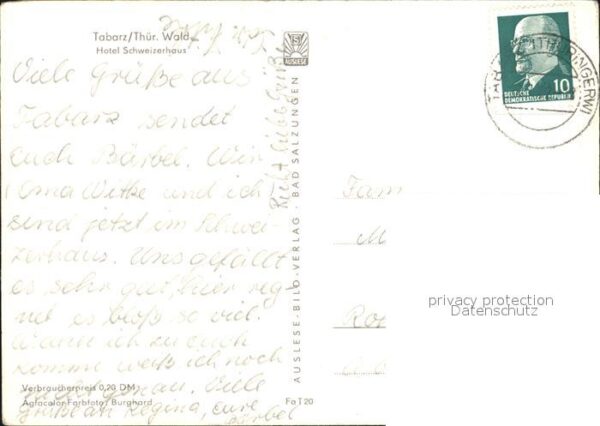 Tabarz/Thür. Wald
Hotel Schweizerhaus
AUSLESE
Viele Grüße aus
Tabarz sendet
euch Bärbel. Wir
Oma Witke und ich
sind jetzt im Schwei-
zerhaus. Uns gefällt
es sehr gut, hier reg
net es bloß so viel.
Wann ich zu euch
komme weiß ich noch
nicht genau. Viele
Grüße an Regina, eure
Bärbel
Recht liebe Grüße
Verbraucherpreis 0,20 DM
Agfacolor-Farbfoto/Burghard
Fo T 20
AUSLESE-BILD-VERLAG · BAD SALZUNGEN
10
DEUTSCHE
DEMOKRATISCHE REPUBLIK
TABARZ (THÜRINGERW)
Fam
privacy protection
Datenschutz